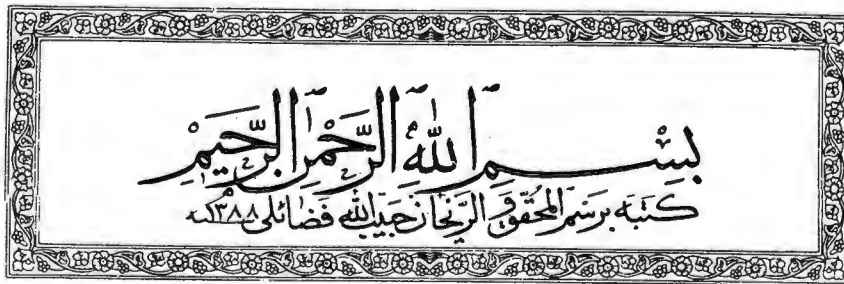 بِسْمِ اللهِ الرَّحْمٰنِ الرَّحِيمْ
كتبه برسم المحقق و الریحان حبیب الله فضائلی ۱۳۸۸